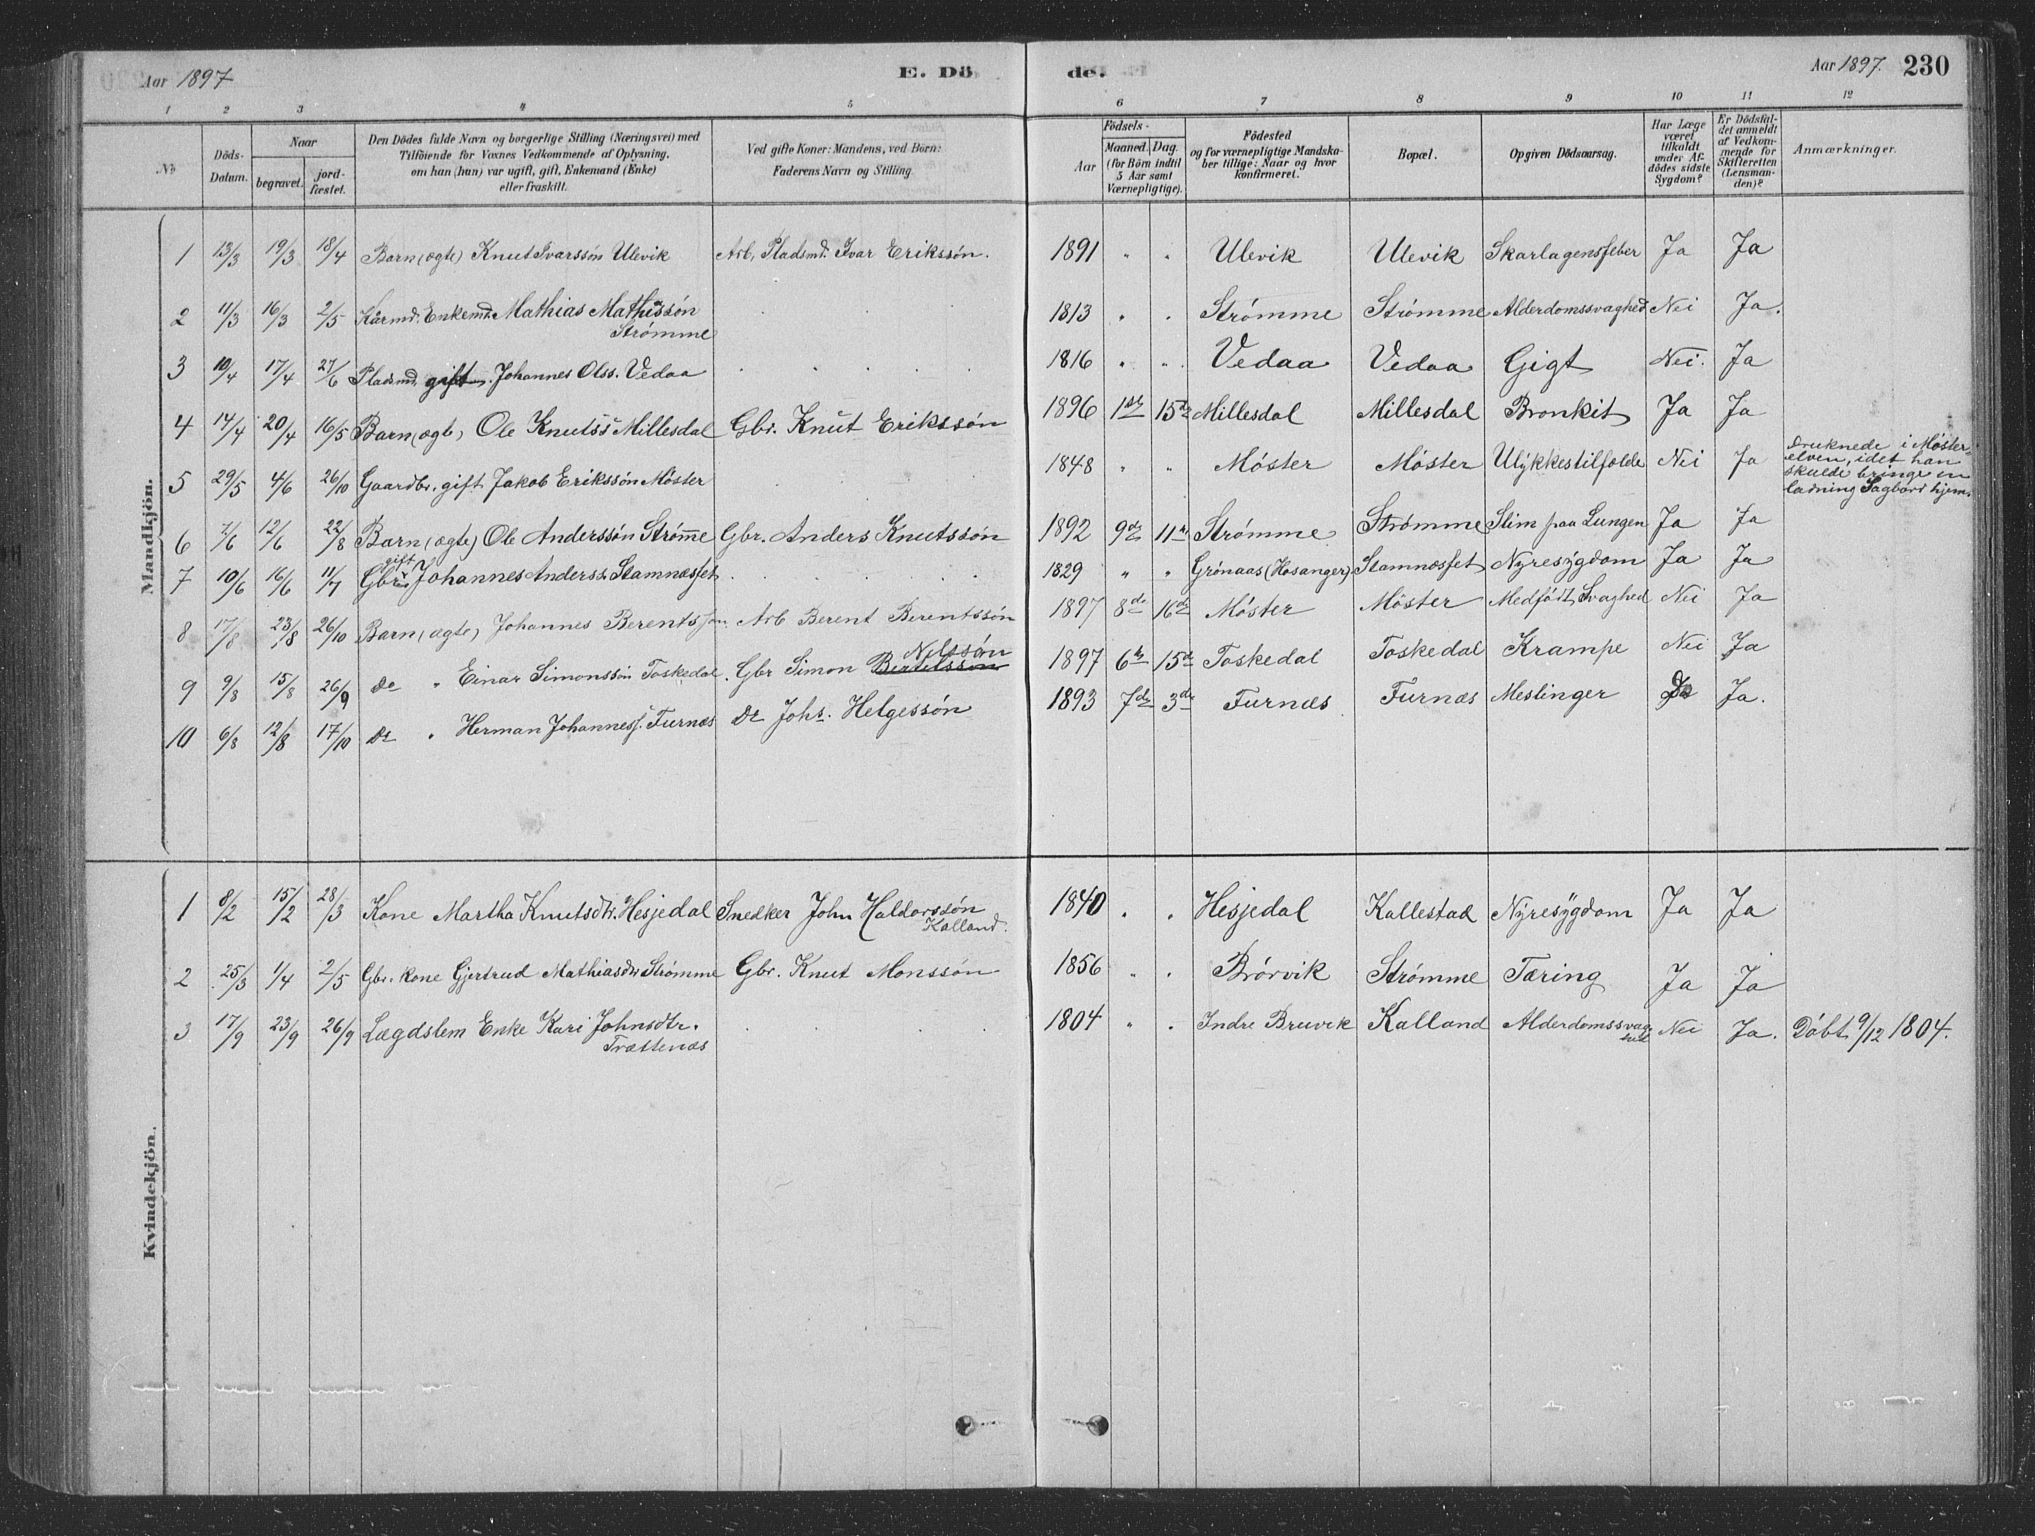 Aar 1897 E. Dö de. Aar 1897. 230
1 2 3 4 5 6 7 8 9 10 11 12
№
Döds-
Datum.
Naar
begravet.
jord-
fæstet.
Den Dödes fulde Navn og borgerlige Stilling (Næringsvei) med
Tilföiende for Voxnes Vedkommende af Oplysning,
om han (hun) var ugift, gift, Enkemand (Enke)
eller fraskilt.
Ved gifte Koner: Mandens, ved Börn:
Faderens Navn og Stilling.
Födsels-
Aar
Maaned. Dag.
(for Börn indtil
5 Aar samt
Værnepligtige).
Födested
og for værnepligtige Mandska-
ber tillige: Naar og hvor
konfirmeret.
Bopæl.
Opgiven Dödsaarsag.
Har Læge
været
tilkaldt
under Af-
dödes sidste
Sygdom?
Er Dödsfal-
det anmeldt
af Vedkom-
mende for
Skifteretten
(Lensman-
den)?
Anmærkninger.
Mandkjön.
1 13/3 19/3 18/4 Barn (ægte) Knut Ivarssøn Ulevik Arb. Pladsmd. Ivar Erikssøn. 1891 " " Ulevik Ulevik Skarlagensfeber Ja Ja
2 11/3 16/3 2/5 Kårmd. Enkemd. Mathias Mathiassøn
Strømme 1813 " " Strømme Strømme Alderdomssvaghed Nei Ja.
3 10/4 17/4 27/6 Pladsmd. gift Johannes Olss. Vedaa 1816 " " Vedaa Vedaa Gigt Nei. Ja
4 14/4 20/4 16/5 Barn (ægte) Ole Knutss. Millesdal Gbr. Knut Erikssøn 1896 1de 15de Millesdal Millesdal Bronkit Ja Ja
5 29/5 4/6 26/10 Gaardbr. gift Jakob Erikssøn Møster 1848 " " Møster Møster Ulykkestilfælde Nei Ja Druknede i Møster-
elven, idet han
skulde bringe en
ladning Sagbord hjem.
6 7/6 12/6 22/8 Barn (ægte) Ole Anderssøn Strømme Gbr. Anders Knutssøn 1892 9de 11te Strømme Strømme Slim paa Lungen Ja Ja
gift
7 10/6 16/6 11/7 Gbr. Johannes Anderss. Stamnæsset 1829 " " Grønaas (Hosanger) Stamnæsset Nyresygdom Ja Ja
8 17/8 23/8 26/10 Barn (ægte) Johannes Berentssøn Arb Berent Berentssøn 1897 8de 16de Møster Møster Medfødt Svaghed Nei Ja
Nilssøn
9 9/8 15/8 26/9 Do " Einar Simonssøn Toskedal. Gbr Simon 1897 6te 15de Toskedal Toskedal Krampe Nei Ja
10 6/8 12/8 17/10 Do " Herman Johanness. Furnæs Do Johs. Helgessøn 1893 7de 3de Furnæs Furnæs Meslinger Ja Ja.
Kvindekjön.
1 8/2 15/2 28/3 Kone Martha Knutsdtr. Hesjedal Snedker John Haldorssøn
Kalland. 1840 " " Hesjedal Kallestad Nyresygdom Ja Ja
2 25/3 1/4 2/5 Gbr. kone Gjertrud Mathiasdtr Strømme Gbr. Knut Monssøn 1856 " " Brørvik Strømme Tæring Ja Ja
3 17/9 23/9 26/9 Lægdslem Enke Kari Johnsdtr.
Trættenæs 1804 " " Indre Bruvik Kalland Alderdomssvag-
hed Nei Ja. Døbt 9/12 1804.